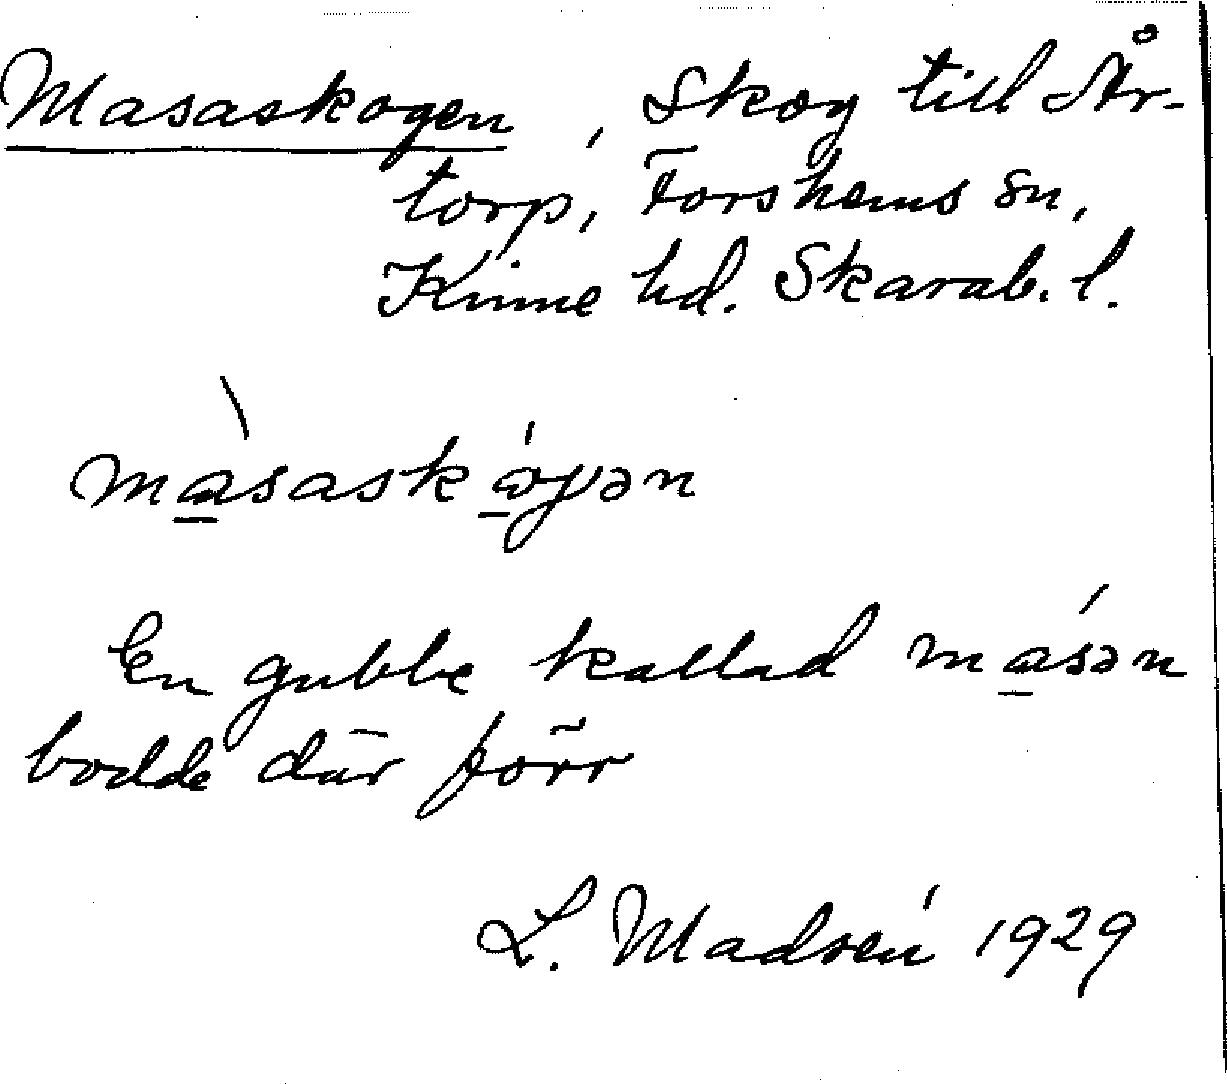 Masaskogen, Skog till År-
torp, Forshems sn,
Kinne hd. Skarab. l.
màsaskåγən
En gubbe kallad másən
bodde där förr
L. Madsén 1929